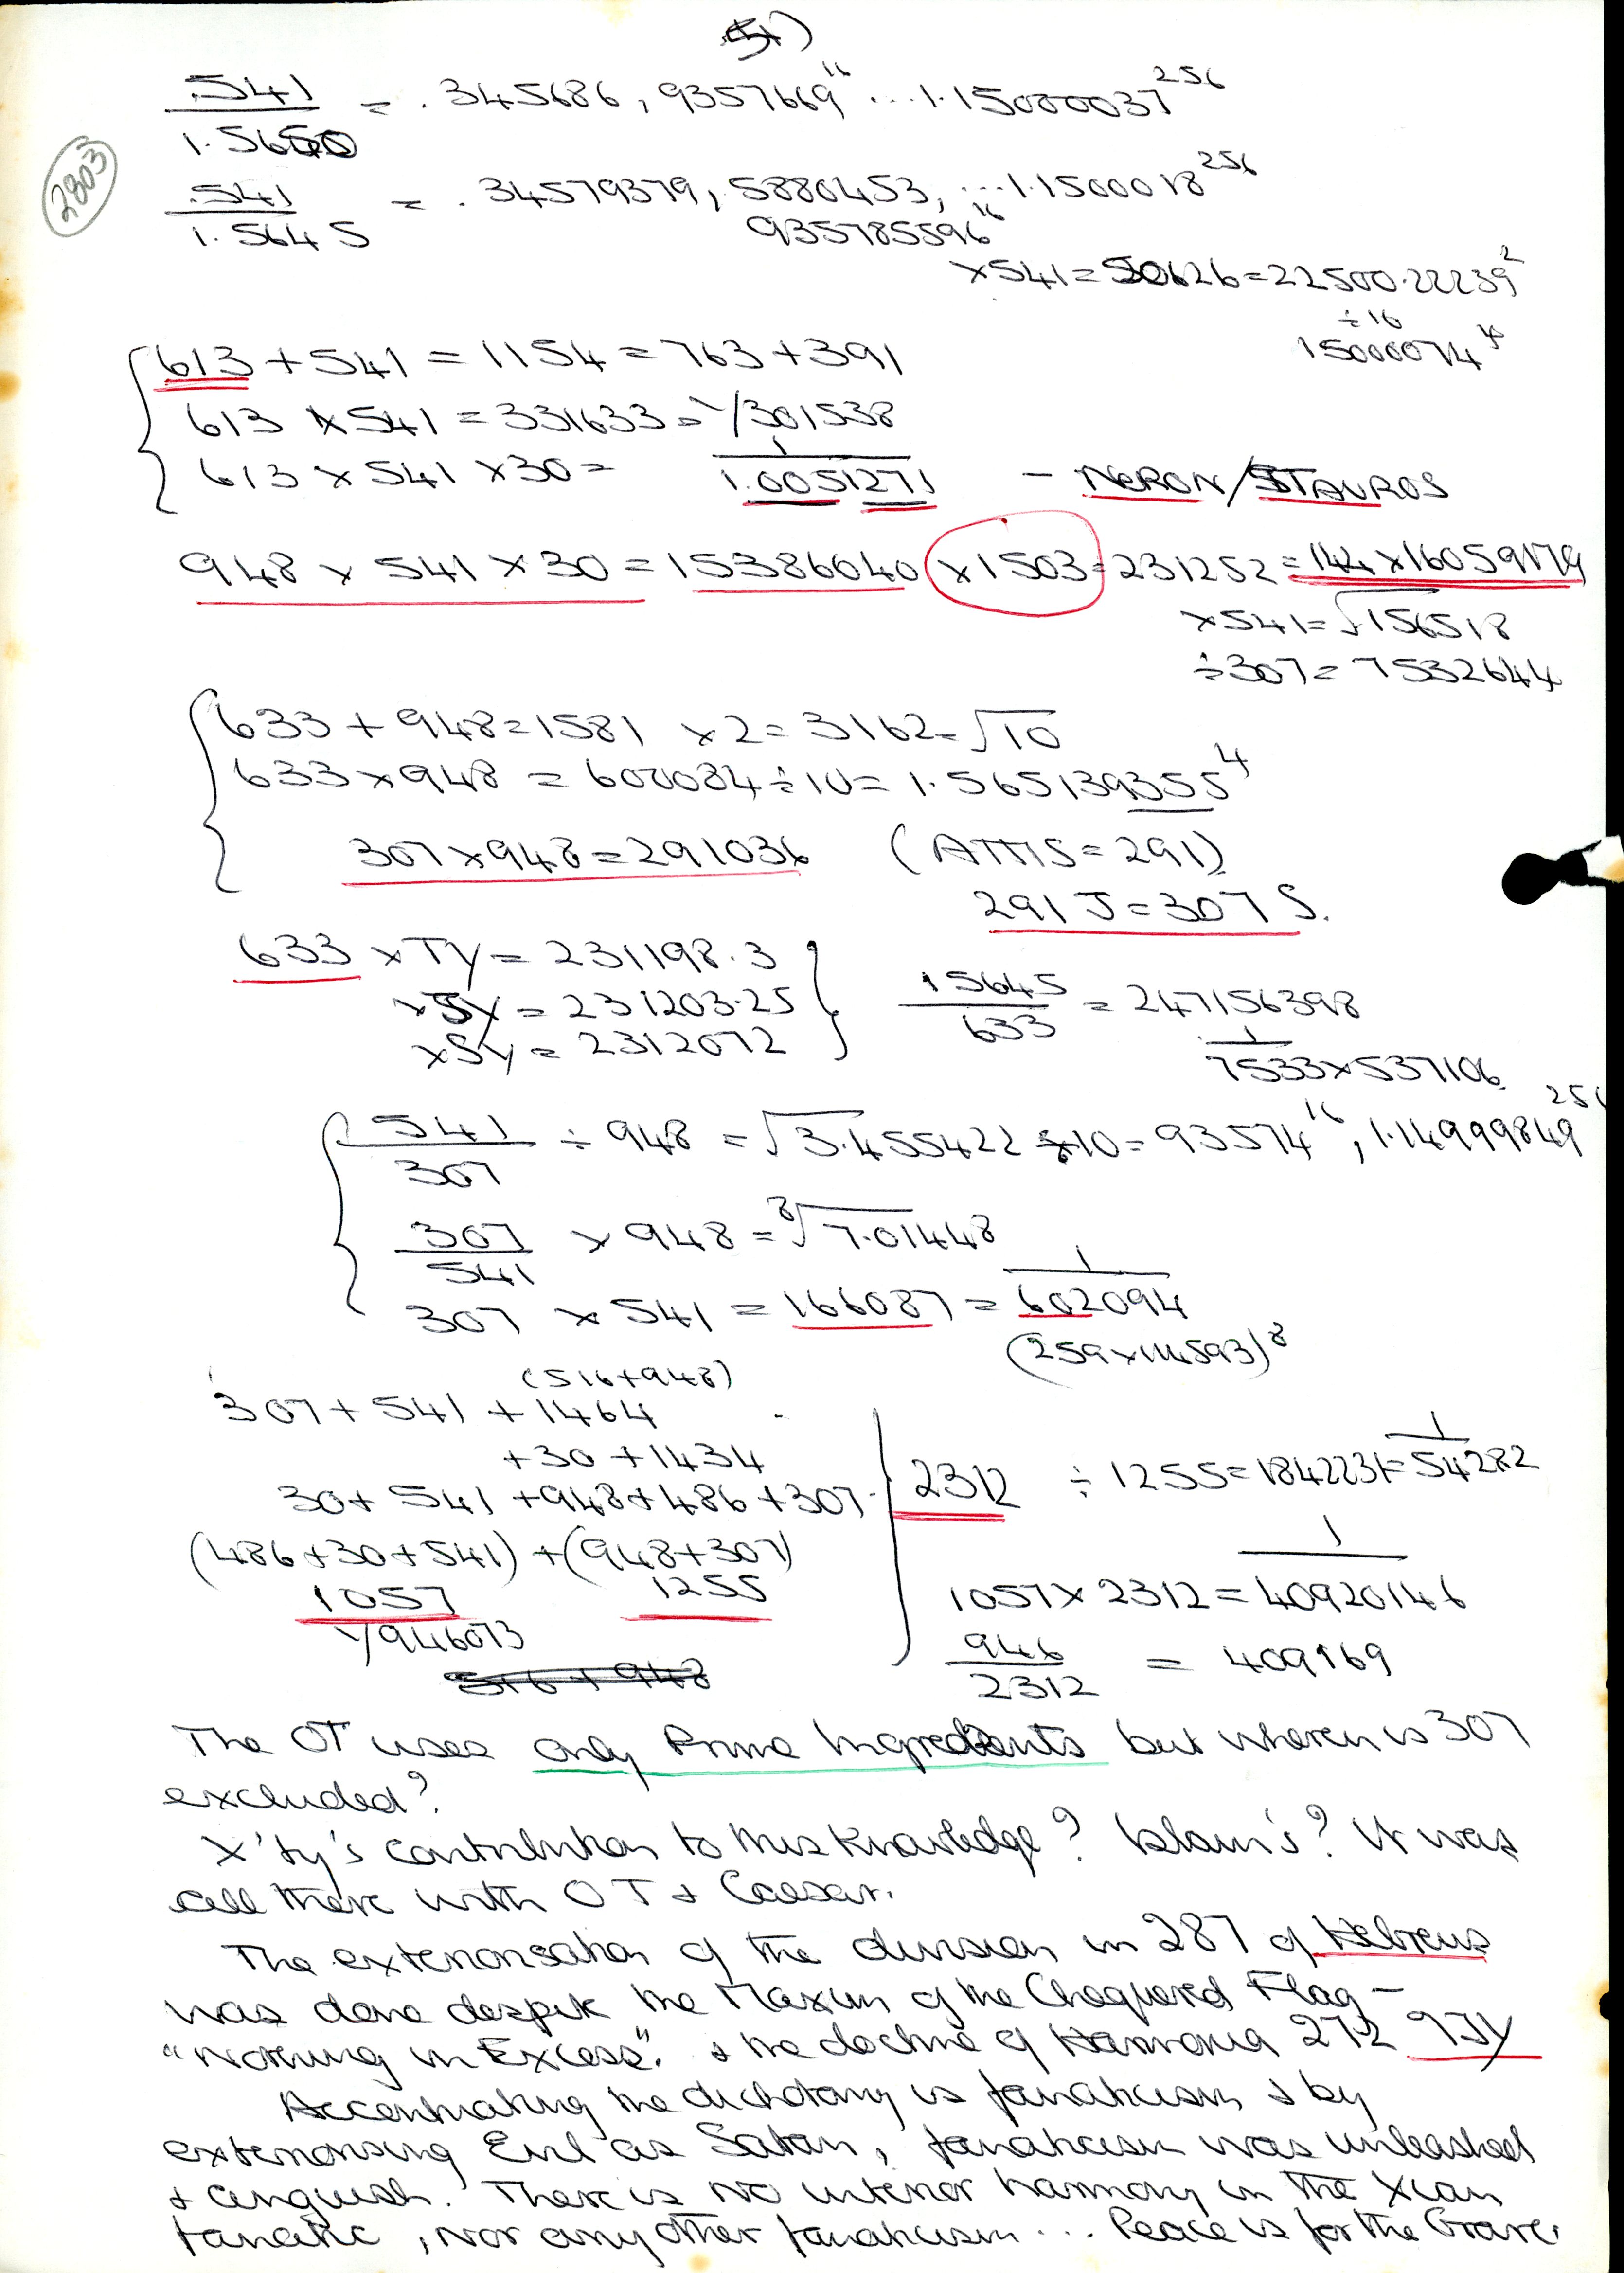 2803
.541 / 1.5650 = .345686, 9357669^16 ... 1.15000037^256
.541 / 1.5645 = .34579379, 5880453, ... 1.1500018^256
935785596^16
×541 = 50626 = 22500.22239^2
÷16
15000074^4
613 + 541 = 1154 = 763 + 391
613 × 541 = 331633 = 1/301538
613 × 541 × 30 = 1/1.0051271 – NERON/STAUROS
948 × 541 × 30 = 15386040 ×1503 = 231252 = 144×16059179
×541 = √156518
÷307 = 7532644
633 + 948 = 1581 ×2 = 3162 = √10
633 × 948 = 600084 ÷ 10 = 1.565139355^4
307 × 948 = 291036 (ATTIS = 291)
291 J = 307 S.
633 × TY = 231198.3
×JY = 231203.25
×SY = 2312072
15645 / 633 = 247156398
1 / 7533×537106
541 / 307 ÷ 948 = √3.455422 ×10 = 93574^16, 1.14999849^256
307 / 541 × 948 = ⁸√7.01448
307 × 541 = 166087 = 1 / 602094
(259×144593)^8
(516+948)
307 + 541 + 1464
+30 + 1434
30 + 541 + 948 + 486 + 307
(486+30+541) + (948+307)
1057 1255
1/946073
516 + 948
2312 ÷ 1255 = 1842231 = 1/54282
1057 × 2312 = 1 / 40920146
946 / 2312 = 409169
The OT uses only Prime Ingredients but wherein is 307
excluded?
X'ty's contribution to this knowledge? Islam's? It was
all there with OT & Caesar.
The exteriorisation of the division in 287 of Hebreus
was done despite the Maxim of the Chequered Flag –
"Nothing in Excess". & the doctrine of Harmonia 272 9JY
Accentuating the dichotomy is fanaticism & by
exteriorising Evil as Satan, fanaticism was unleashed
& anguish. There is no interior harmony in the Xian
fanatic, nor any other fanaticism ... Peace is for the Grave.